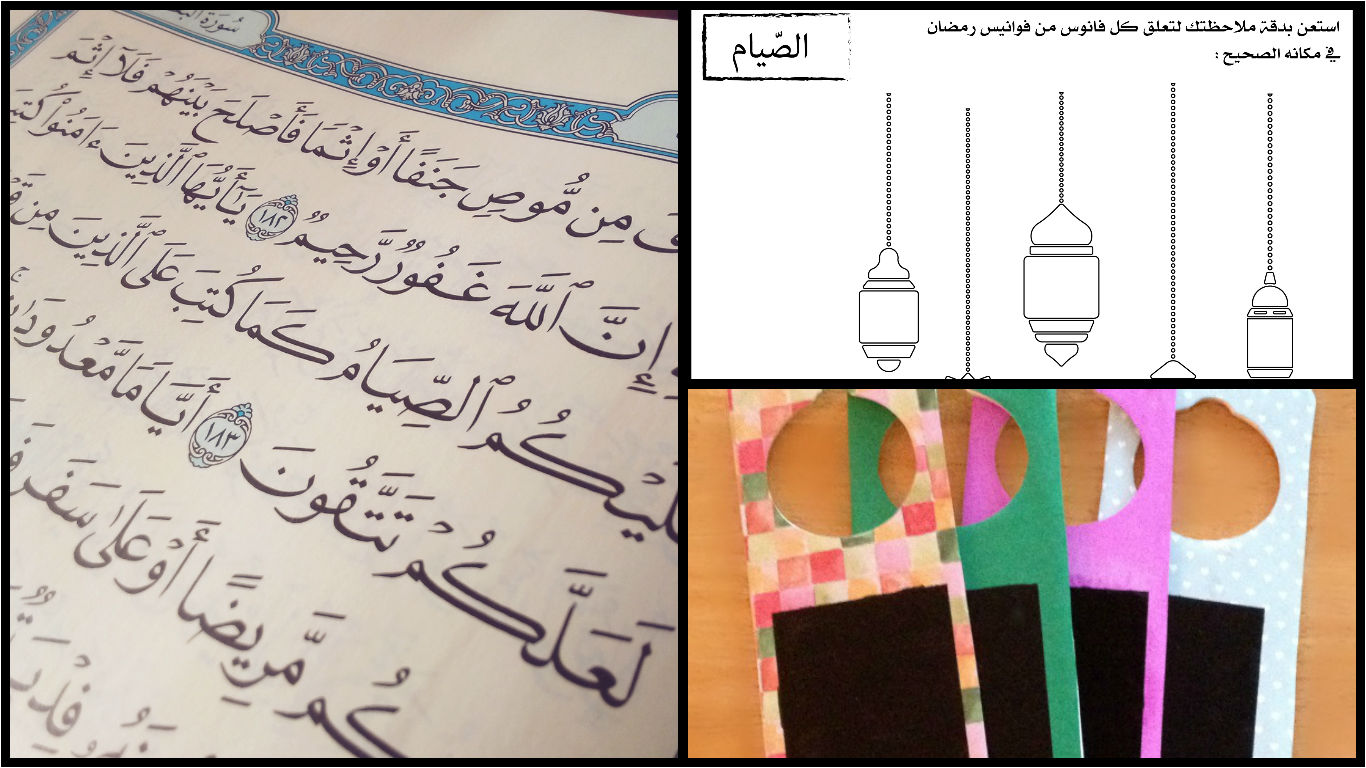 سُورَةُ
مِن مُّوصٍ جَنَفًا أَوْ إِثْمًا فَأَصْلَحَ بَيْنَهُمْ فَلَآ إِثْمَ
إِنَّ ٱللَّهَ غَفُورٌ رَّحِيمٌ ١٨٢ يَٰٓأَيُّهَا ٱلَّذِينَ ءَامَنُوا۟ كُتِبَ
لَيْكُمُ ٱلصِّيَامُ كَمَا كُتِبَ عَلَى ٱلَّذِينَ مِن
لَعَلَّكُمْ تَتَّقُونَ ١٨٣ أَيَّامًا مَّعْدُودَٰ
كُم مَّرِيضًا أَوْ عَلَىٰ سَفَرٍ
الصّيام
استعن بدقة ملاحظتك لتعلق كل فانوس من فوانيس رمضان
في مكانه الصحيح :